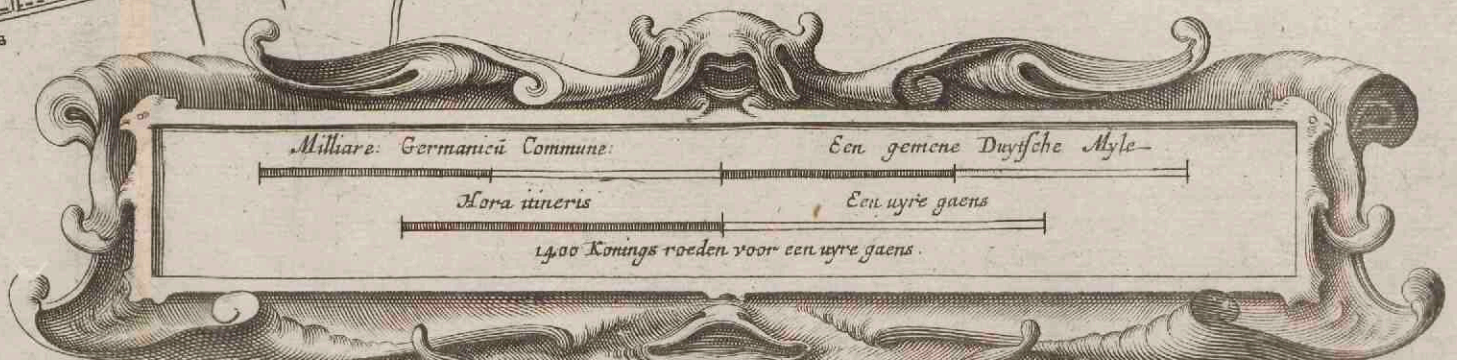 Milliare: Germanicū Commune: Een gemene Duytsche Myle
Hora itineris Een uyre gaens
1400 Konings roeden voor een uyre gaens.